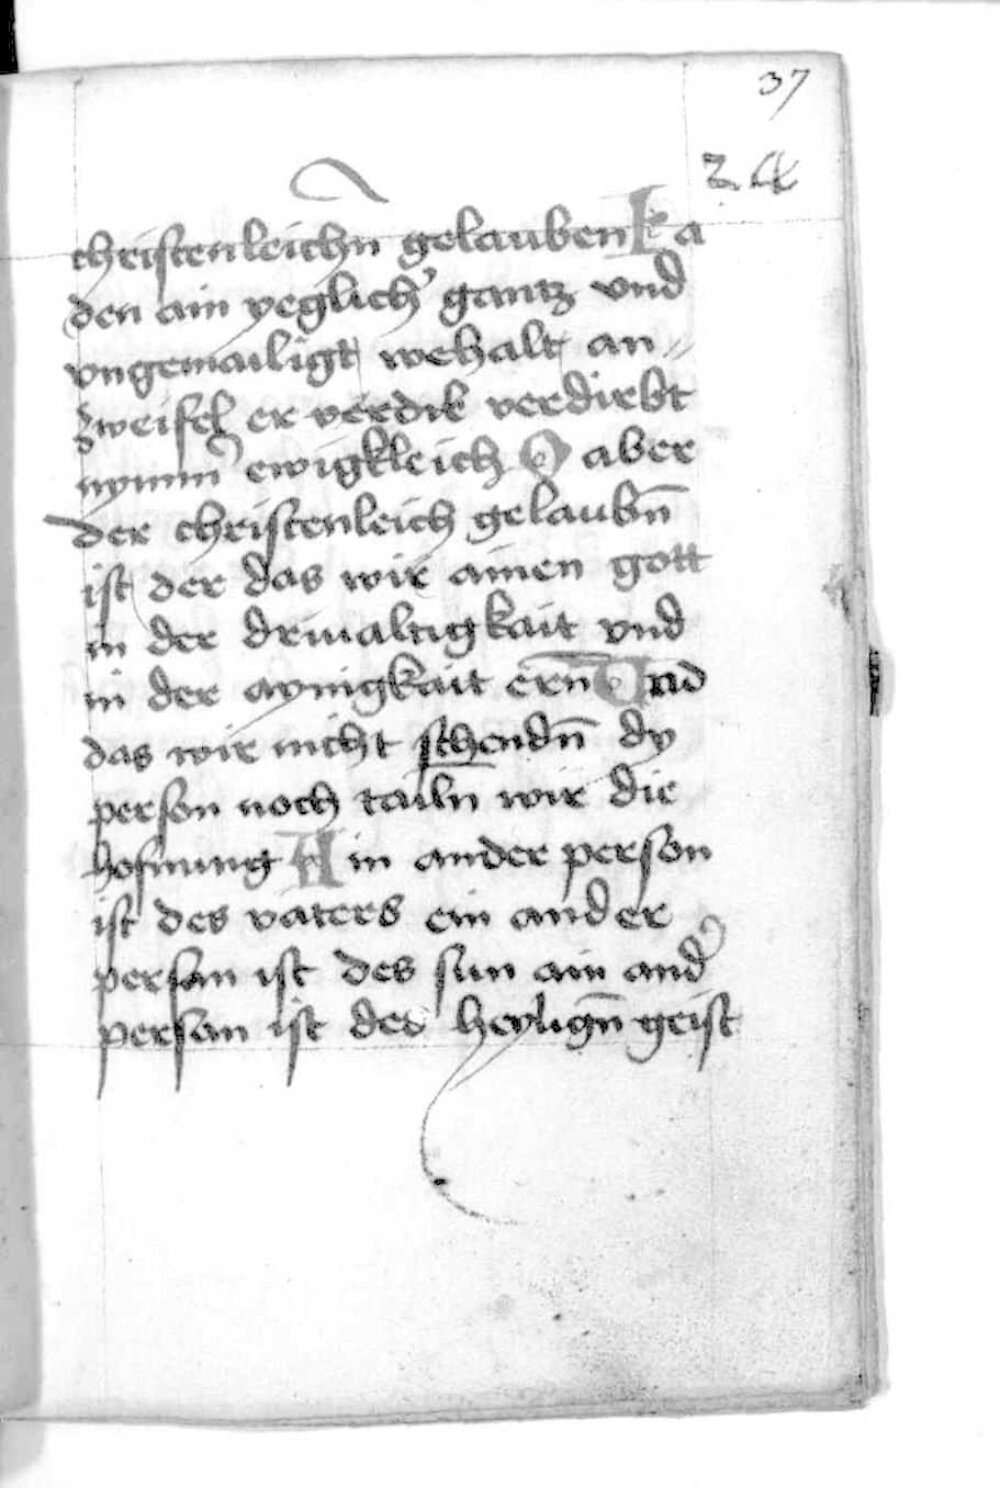 37
christenleichn gelauben
den ain yeglich' gantz vnd
vngemailigt wehalt an
zweifel er werdik verdirbt
nymm' ewigkleich D aber
der christenleich gelaubn̄
ist der das wir ainen gott
in der driualtigkait vnd
in der aynigkait ern̄ Vnd
das wir nicht schendn̄ dy
person noch tailn wir die
hofnung A in ander person
ist des vaters ein ander
persan ist des sun ain and'
persan ist des heylign̄ geist